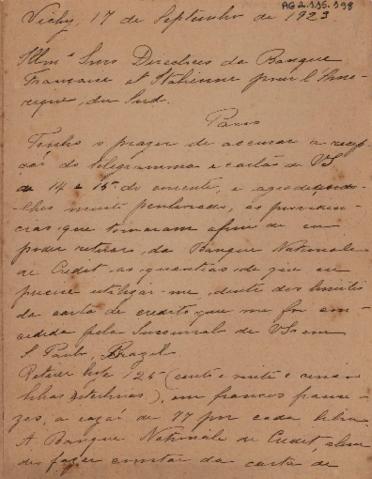 AG 2.1.16.198
Vichy, 17 de Septembro de 1923
Illmos Snrs Directores da Banque
Française et Italienne pour l'Amé-
rique du Sud.
Paris
Tenho o prazer de accusar a recep-
ção do telegramma e cartão de VS
de 14 e 15 do corrente, e agradecendo-
lhes muito penhorado, as providen-
cias que tomaram afim de eu
poder retirar, da Banque Nationale
de Credit as quantias de que eu
precise utilizar-me, dentro dos limites
da carta de credito que me foi con-
cedida pela Succursale de VS em
S Paulo, Brazil
Retirei hoje 125 (cento e vinte e cinco
libras esterlinas), em francos france-
zes, a razão de 77 por cada libra.
A Banque Nationale de Credit, alem
de fazer constar da carta de